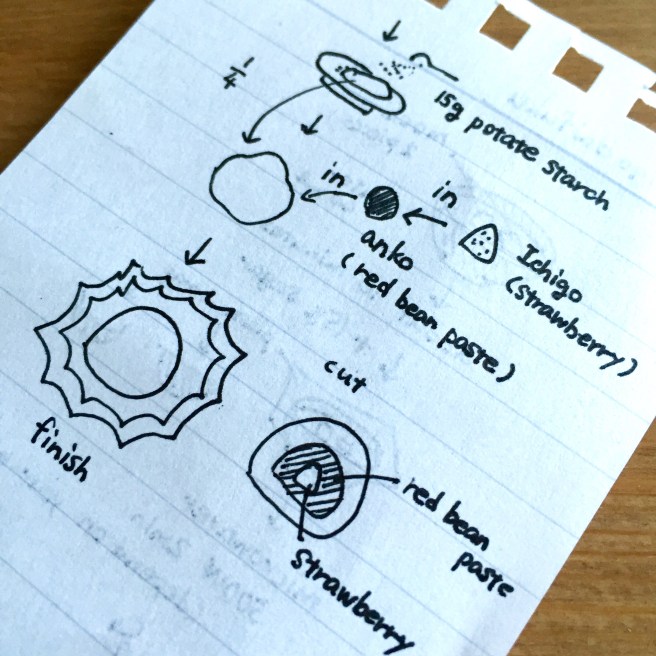 1/4
15g potate starch
in
in
anko
(red bean paste)
Ichigo
(strawberry)
finish
cut
red bean
paste
strawberry